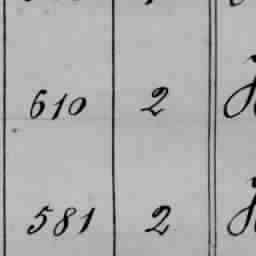 610 2
581 2